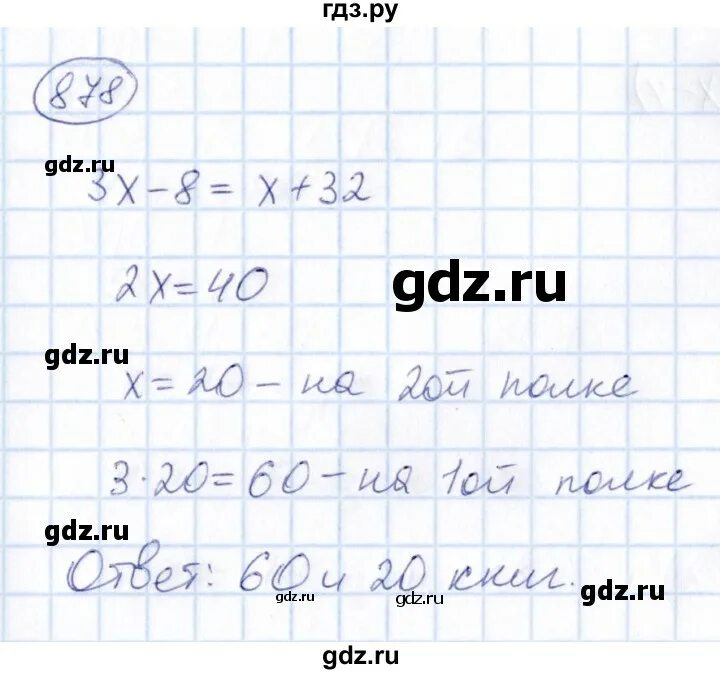 гдз.ру
878
gdz.ru
3x-8= x+32
2x=40
gdz.ru
gdz.ru
x=20 - на 2ой полке
3·20=60 - на 1ой полке
gdz.ru
Ответ: 60 и 20 книг.
gdz.ru
gdz.ru
gdz.ru
gdz.ru